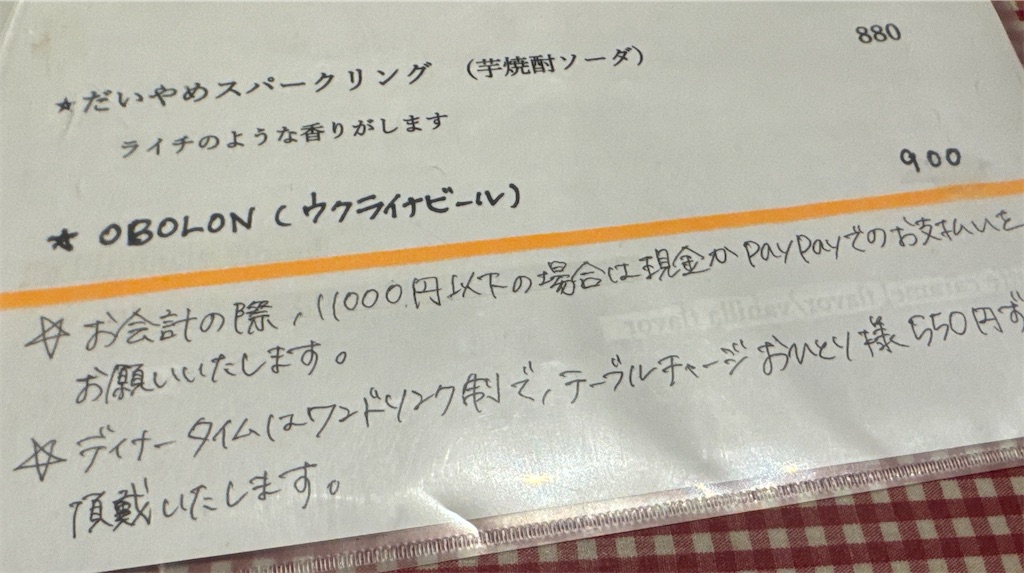 880
★だいやめスパークリング (芋焼酎ソーダ)
ライチのような香りがします
900
★ OBOLON (ウクライナビール)
☆ お会計の際、11000円以下の場合は現金かpaypayでのお支払いを
お願いいたします。
☆ ディナータイムはワンドリンク制で、テーブルチャージおひとり様550円ず
頂戴いたします。